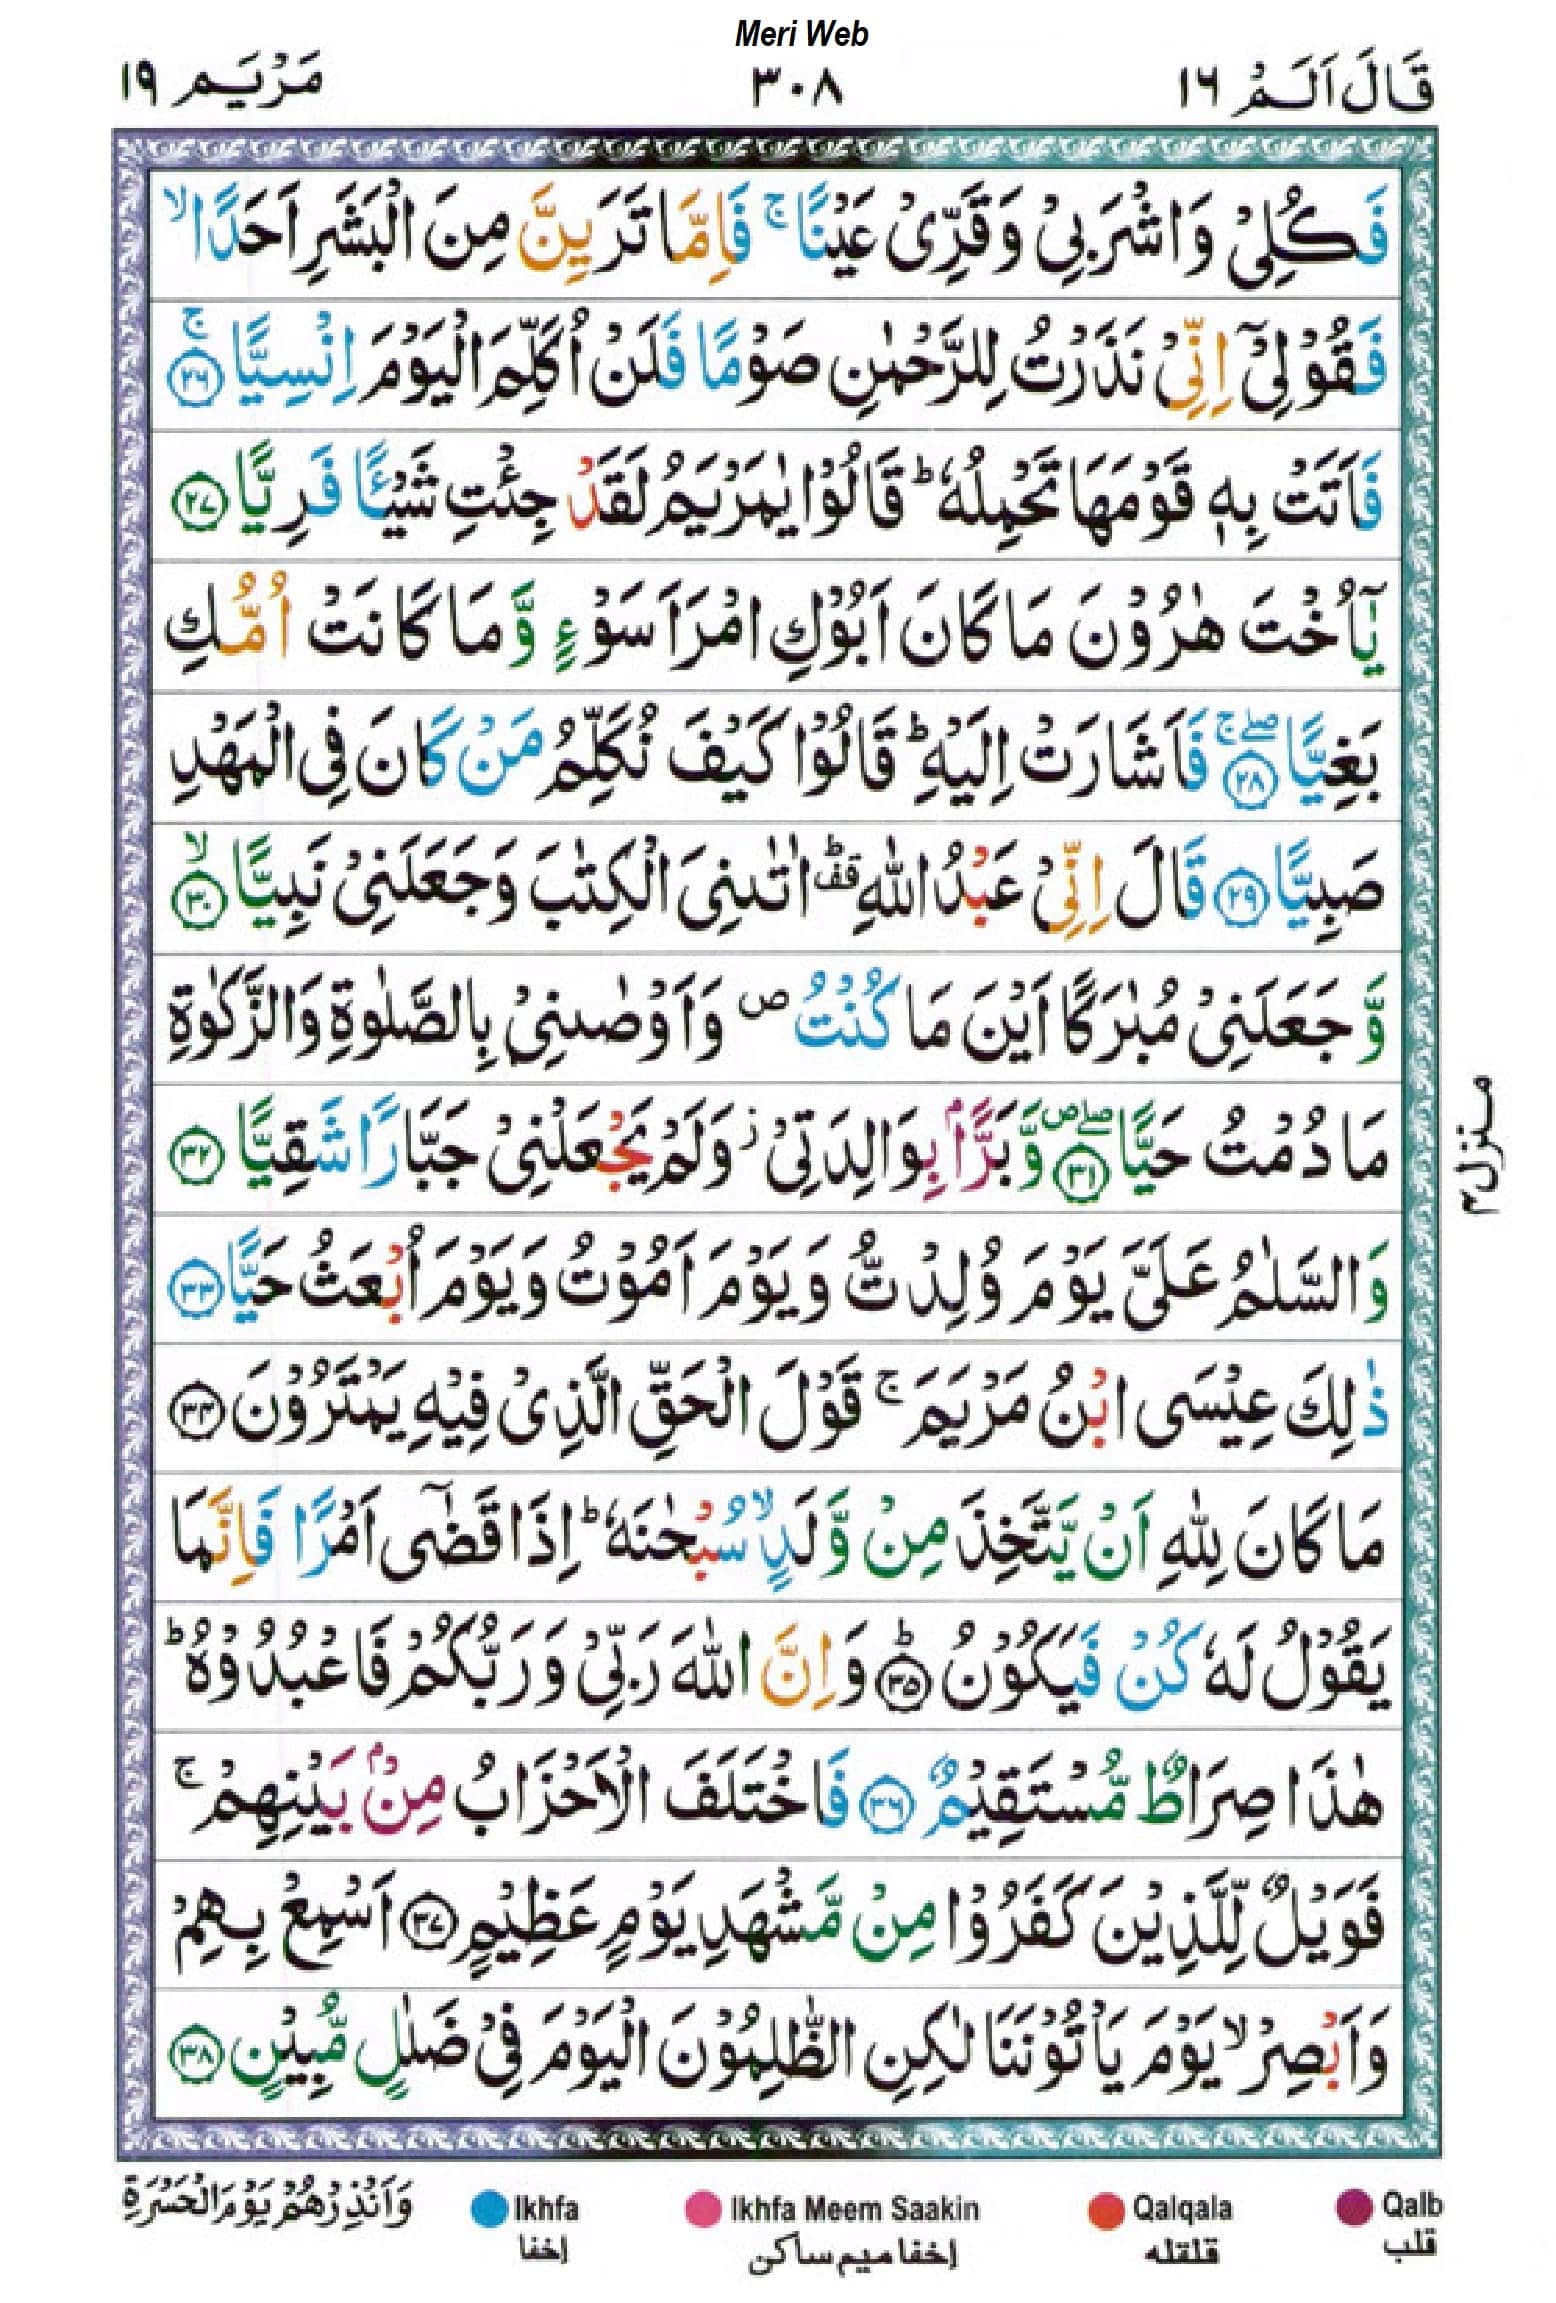 Meri Web
قَالَ اَلَمْ ١٦ ٣٠٨ مَرْيَم ١٩
فَكُلِيْ وَاشْرَبِيْ وَقَرِّيْ عَيْنًا ۚ فَاِمَّا تَرَيِنَّ مِنَ الْبَشَرِ اَحَدًا ۙ
فَقُوْلِيْۤ اِنِّيْ نَذَرْتُ لِلرَّحْمٰنِ صَوْمًا فَلَنْ اُكَلِّمَ الْيَوْمَ اِنْسِيًّا ۚ ﴿٢٦﴾
فَاَتَتْ بِهٖ قَوْمَهَا تَحْمِلُهٗ ؕ قَالُوْا يٰمَرْيَمُ لَقَدْ جِئْتِ شَيْـًٔا فَرِيًّا ﴿٢٧﴾
يٰۤاُخْتَ هٰرُوْنَ مَا كَانَ اَبُوْكِ امْرَاَ سَوْءٍ وَّمَا كَانَتْ اُمُّكِ
بَغِيًّا ۖۚ ﴿٢٨﴾ فَاَشَارَتْ اِلَيْهِ ؕ قَالُوْا كَيْفَ نُكَلِّمُ مَنْ كَانَ فِي الْمَهْدِ
صَبِيًّا ﴿٢٩﴾ قَالَ اِنِّيْ عَبْدُ اللّٰهِ ؕقف اٰتٰىنِيَ الْكِتٰبَ وَجَعَلَنِيْ نَبِيًّا ۙ ﴿٣٠﴾
وَّجَعَلَنِيْ مُبٰرَكًا اَيْنَ مَا كُنْتُ ص وَاَوْصٰىنِيْ بِالصَّلٰوةِ وَالزَّكٰوةِ
مَا دُمْتُ حَيًّا صلےص ﴿٣١﴾ وَّبَرًّۢا بِوَالِدَتِيْ ز وَلَمْ يَجْعَلْنِيْ جَبَّارًا شَقِيًّا ﴿٣٢﴾
وَالسَّلٰمُ عَلَيَّ يَوْمَ وُلِدْتُّ وَيَوْمَ اَمُوْتُ وَيَوْمَ اُبْعَثُ حَيًّا ﴿٣٣﴾
ذٰلِكَ عِيْسَى ابْنُ مَرْيَمَ ۚ قَوْلَ الْحَقِّ الَّذِيْ فِيْهِ يَمْتَرُوْنَ ﴿٣٤﴾
مَا كَانَ لِلّٰهِ اَنْ يَّتَّخِذَ مِنْ وَّلَدٍ ۙ سُبْحٰنَهٗ ؕ اِذَا قَضٰۤى اَمْرًا فَاِنَّمَا
يَقُوْلُ لَهٗ كُنْ فَيَكُوْنُ ؕ ﴿٣٥﴾ وَاِنَّ اللّٰهَ رَبِّيْ وَرَبُّكُمْ فَاعْبُدُوْهُ ؕ
هٰذَا صِرَاطٌ مُّسْتَقِيْمٌ ﴿٣٦﴾ فَاخْتَلَفَ الْاَحْزَابُ مِنْۢ بَيْنِهِمْ ۚ
فَوَيْلٌ لِّلَّذِيْنَ كَفَرُوْا مِنْ مَّشْهَدِ يَوْمٍ عَظِيْمٍ ﴿٣٧﴾ اَسْمِعْ بِهِمْ
وَاَبْصِرْ ۙ يَوْمَ يَاْتُوْنَنَا لٰكِنِ الظّٰلِمُوْنَ الْيَوْمَ فِيْ ضَلٰلٍ مُّبِيْنٍ ﴿٣٨﴾
منزل٣
وَاَنْذِرْهُمْ يَوْمَ الْحَسْرَةِ
Ikhfa Ikhfa Meem Saakin Qalqala Qalb
إخفا إخفا ميم ساكن قلقله قلب